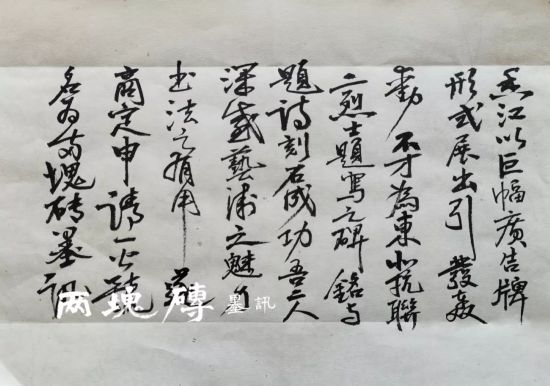 香江以巨幅廣告牌
形式展出引發轟
動 不才為東北抗聯
二烈士題寫之碑銘与
題詩刻石成功吾二人
深感藝術之魅力
书法之有用
商定申請一號
名为两塊磚墨訊
两塊磚 墨訊